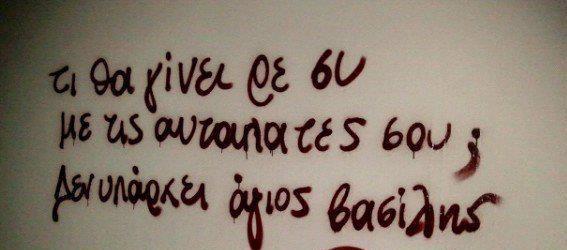 τι θα γίνει ρε συ
με τις αυταπατες σου;
Δεν υπάρχει άγιος βασίλης